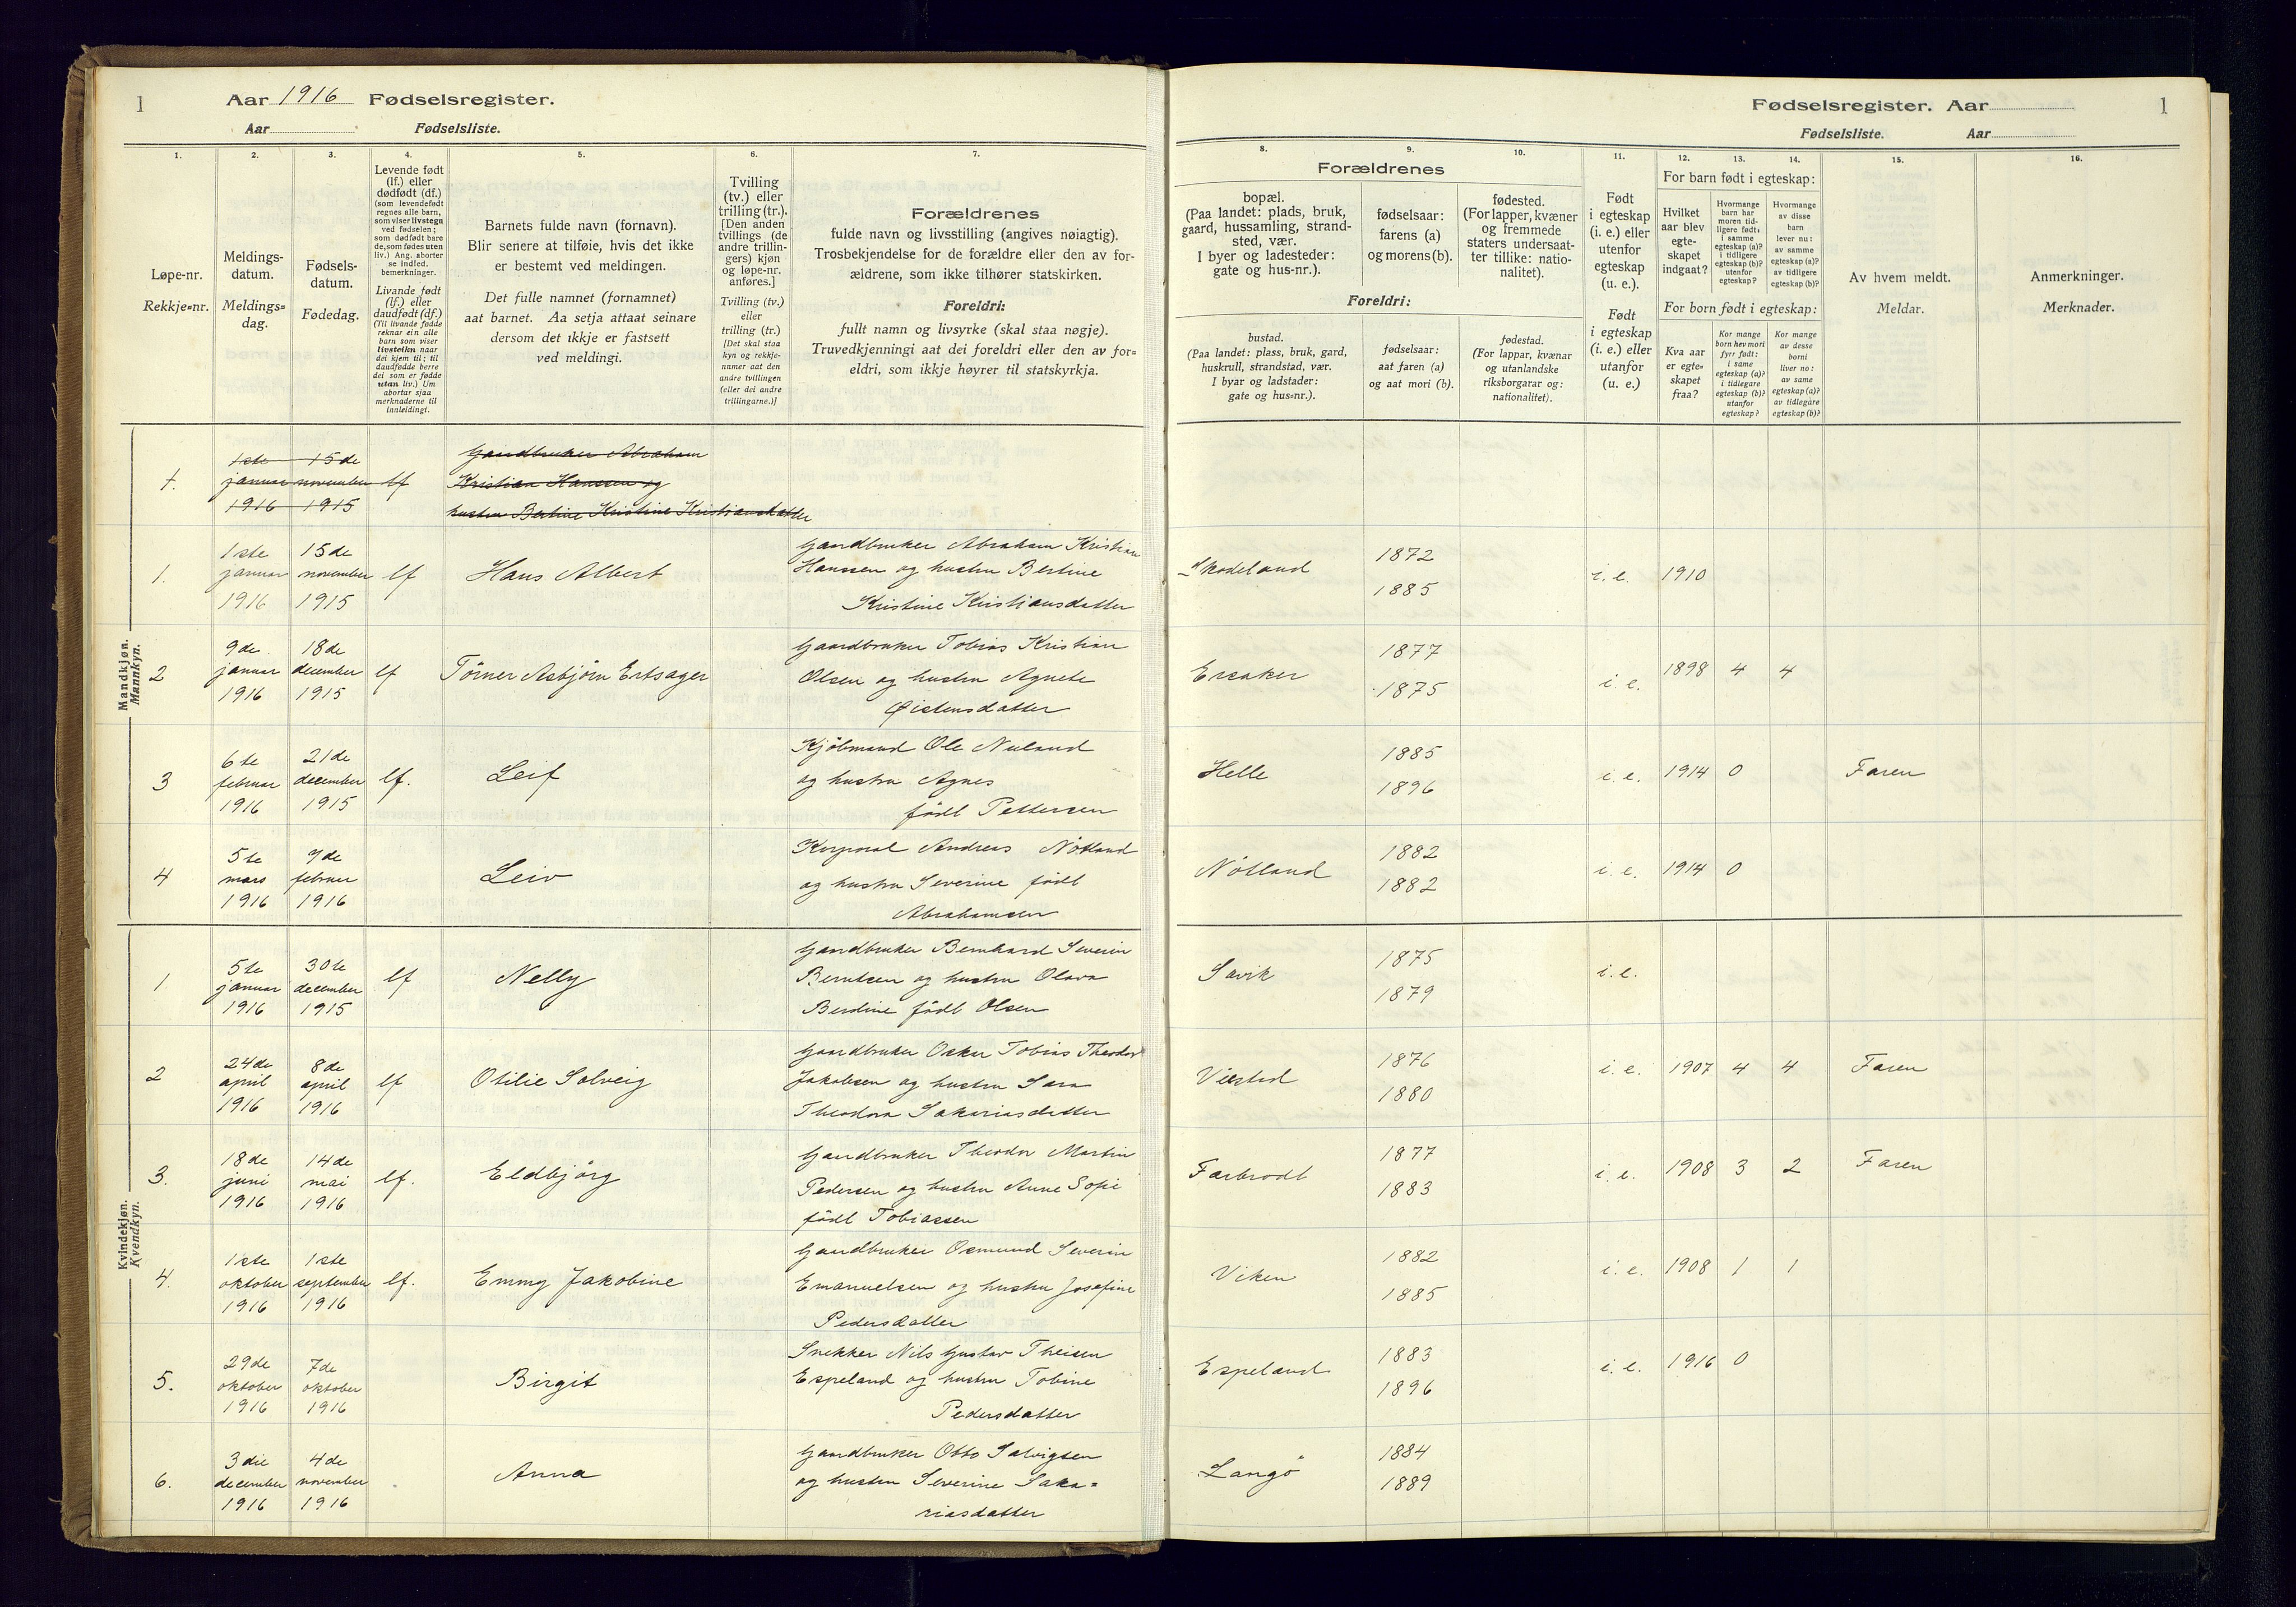 1
Aar 1916 Fødselsregister.
Aar Fødselsliste.
Fødselsregister. Aar
1
Fødselsliste. Aar
1.
Løpe-nr.
Rekkje=nr.
2.
Meldings-
datum.
Meldings=
dag.
3.
Fødsels-
datum.
Fødedag.
4.
Levende født
(lf.) eller
dødfødt (df.)
(som levendefødt
regnes alle barn,
som viser livstegn
ved fødselen;
som dødfødt bare
de, som fødes uten
liv.) Ang. aborter
se indled.
bemerkninger.
Livande født
(lf.) eller
daudfødt (df.)
(Til livande fødde
reknar ein alle
born som viser
livsteikn naar
dei kjem til; til
daudfødde berre
dei som er fødde
utan liv.) Um
abortar sjaa
merknaderne til
innleidingi.
5.
Barnets fulde navn (fornavn).
Blir senere at tilføie, hvis det ikke
er bestemt ved meldingen.
Det fulle namnet (fornamnet)
aat barnet. Aa setja attaat seinare
dersom det ikkje er fastsett
ved meldingi.
6.
Tvilling
(tv.) eller
trilling (tr.).
[Den anden
tvillings (de
andre trillin-
gers) kjøn
og løpe-nr.
anføres.]
Tvilling (tv.)
eller
trilling (tr.)
[Det skal staa
kyn og rekkje-
numer aat den
andre tvillingen
(eller dei andre
trillingarne.)]
7.
Forældrenes
fulde navn og livsstilling (angives nøiagtig).
Trosbekjendelse for de forældre eller den av for-
ældrene, som ikke tilhører statskirken.
Foreldri:
fullt namn og livsyrke (skal staa nøgje).
Truvedkjenningi aat dei foreldri eller den av for=
eldri, som ikkje høyrer til statskyrkja.
Forældrenes
8.
bopæl.
(Paa landet: plads, bruk,
gaard, hussamling, strand-
sted, vær.
I byer og ladesteder:
gate og hus-nr.).
9.
fødselsaar:
farens (a)
og morens (b).
10.
fødested.
(For lapper, kvæner
og fremmede
staters undersaat-
ter tillike: natio-
nalitet).
Foreldri:
bustad.
(Paa landet: plass, bruk, gard,
huskrull, strandstad, vær.
I byar og ladstader:
gate og hus=nr.).
fødselsaar:
aat faren (a)
og aat mori (b).
fødestad.
(For lappar, kvænar
og utanlandske
riksborgarar og:
nationalitet).
11.
Født
i egteskap
(i. e.) eller
utenfor
egteskap
(u. e.).
Født
i egteskap
(i. e.) eller
utanfor
(u. e.)
For barn født i egteskap:
12.
Hvilket
aar blev
egte-
skapet
indgaat?
13.
Hvormange
barn har
moren tid-
ligere født:
i samme
egteskap (a)?
i tidligere
egteskap (b)?
utenfor
egteskap?
14.
Hvormange
av disse
barn
lever nu:
av samme
egteskap (a)?
av tidligere
egteskap (b)?
For born født i egteskap:
Kva aar
er egte=
skapet
fraa?
Kor mange
born hev mori
fyrr født:
i same
egteskap (a)?
i tidlegare
egteskap (b)?
utanfor
egteskap?
Kor mange
av desse
borni
liver no:
av same
egteskap (a)?
av tidlegare
egteskap (b)?
15.
Av hvem meldt.
Meldar.
16.
Anmerkninger.
Merknader.
Mandkjøn.
Mannkyn.
1. 1ste januar 1916 15de november 1915 lf
Gaardbruker Abraham
Kristian Hanssen og
hustru Bertine Kristine Kristiansdatter
1. 1ste januar 1916 15de november 1915 lf Hans Albert
Gaardbruker Abraham Kristian
Hanssen og hustru Bertine
Kristine Kristiansdatter
Skodeland 1872 1885 i. e. 1910
2 9de januar 1916 18de december 1915 lf Törner Asbjörn Ertsager
Gaardbruker Tobias Kristian
Olsen og hustru Agnete
Øistensdatter
Ersaker 1877 1875 i. e. 1898 4 4
3 6te februar 1916 21de december 1915 lf. Leif
Kjöbmand Ole Nuland
og hustru Agnes
född Pettersen
Helle 1885 1896 i. e. 1914 0 Faren
4 5te mars 1916 7de februar 1916 Leiv
Korporal Andreas Nötland
og hustru Severine född
Abrahamsen
Nötland 1882 1882 i. e. 1914 0
Kvindekjøn.
Kvendkyn.
1 5te januar 1916 30te december 1915 lf Nelly
Gaardbruker Bernhard Severin
Berntsen og hustru Olava
Berdine född Olsen
Savik 1875 1879 i. e.
2 24de april 1916 8de april 1916 lf Otilie Solveig
Gaardbruker Oskar Tobias Theodor
Jakobsen og hustru Sara
Theodora Sakariasdatter
Viestad 1876 1880 i. e. 1907 4 4 Faren
3. 18de juni 1916 14de mai 1916 lf. Eldbjörg
Gaardbruker Theodor Martin
Pedersen og hustru Anne Sofie
född Tobiassen
Farbrodt 1877 1883 i. e. 1908 3 2 Faren
4. 1ste oktober 1916 1ste september 1916 lf. Emmy Jakobine
Gaardbruker Osmund Severin
Emanuelsen og hustru Josefine
Pedersdatter
Viken 1882 1885 i. e. 1908 1 1
5. 29de oktober 1916 7de oktober 1916 Birgit
Snekker Nils Gustav Theisen
Espeland og hustru Tobine
Pedersdatter
Espeland 1883 1896 i. e. 1916 0
6. 3die december 1916 4de november 1916 Anna
Gaardbruker Otto Salvigsen
og hustru Severine Saka=
riasdatter
Langö 1884 1889